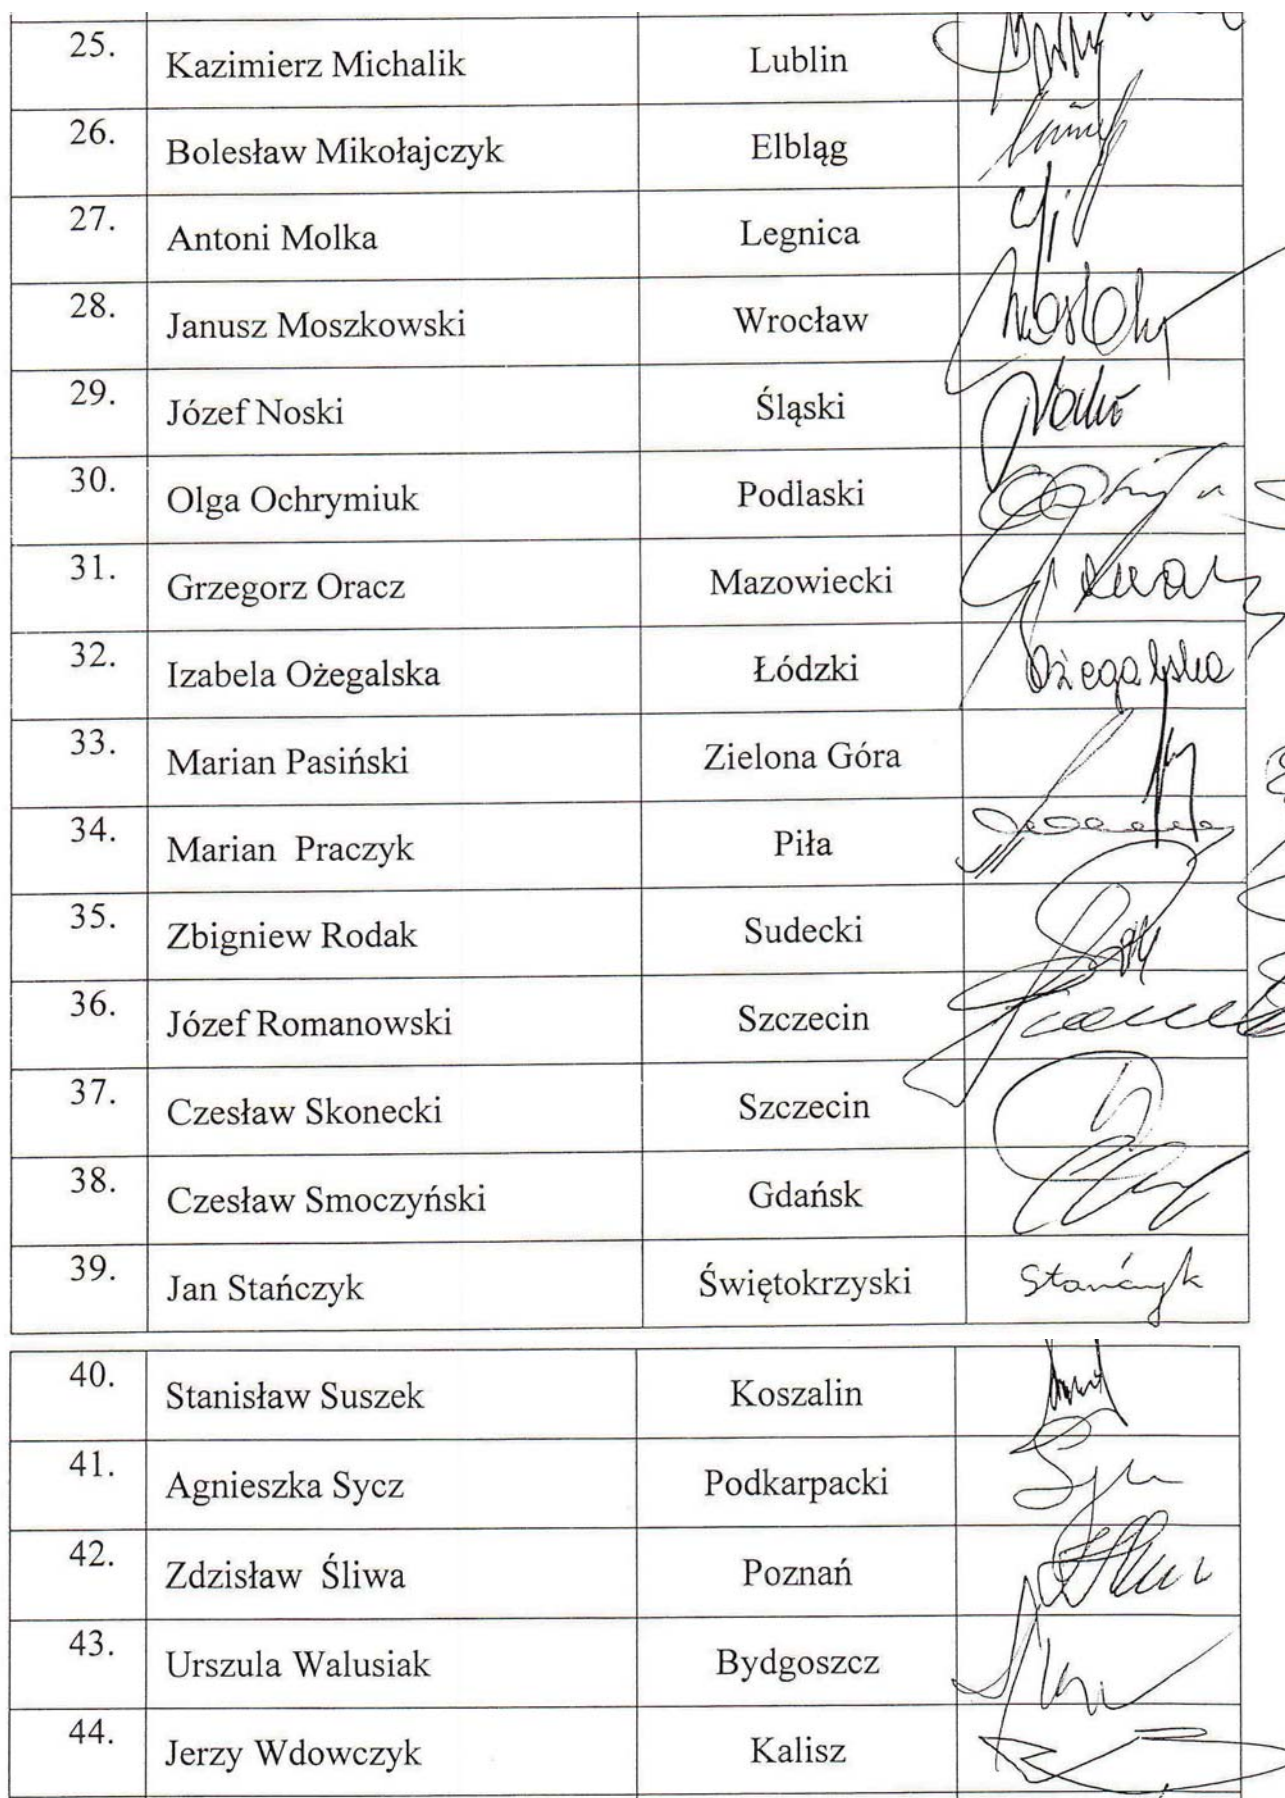 25. Kazimierz Michalik Lublin
26. Bolesław Mikołajczyk Elbląg
27. Antoni Molka Legnica
28. Janusz Moszkowski Wrocław
29. Józef Noski Śląski
30. Olga Ochrymiuk Podlaski
31. Grzegorz Oracz Mazowiecki
32. Izabela Ożegalska Łódzki Ożegalska
33. Marian Pasiński Zielona Góra
34. Marian Praczyk Piła
35. Zbigniew Rodak Sudecki
36. Józef Romanowski Szczecin
37. Czesław Skonecki Szczecin
38. Czesław Smoczyński Gdańsk
39. Jan Stańczyk Świętokrzyski Stańczyk
40. Stanisław Suszek Koszalin
41. Agnieszka Sycz Podkarpacki
42. Zdzisław Śliwa Poznań
43. Urszula Walusiak Bydgoszcz
44. Jerzy Wdowczyk Kalisz